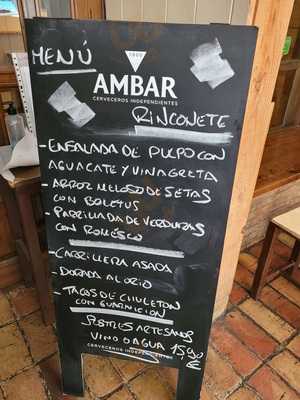 MENÚ
1900
AMBAR
CERVECEROS INDEPENDIENTES
RINCONETE
- ENSALADA DE PULPO CON
AGUACATE Y VINAGRETA
- ARROZ MELOSO DE SETAS
CON BOLETUS
- PARRILLADA DE VERDURAS
CON ROMESCO
- CARRILLERA ASADA
- DORADA AL ORIO
- TACOS DE CHULETON
CON GUARNICION
POSTRES ARTESANOS
CERVECEROS INDEPENDIENTES
VINO O AGUA 15,90 €